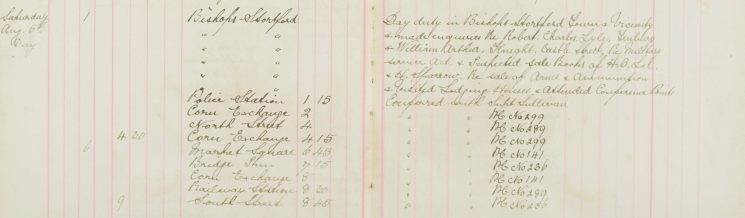 Saturday 1 Bishops-Stortford Day duty in Bishops-Stortford Town & Vicinity
Aug. 6th " " & made enquiries Re Robert, Charles, Lyle,
Day " " & William Arthur, Knight, Castle Street, Re Military
" " Service Act, & Inspected Sale Books of H.A.
" " & Sparrow, Re sale of Arms & Ammunition
" " & Visited Lodging Houses & Attended Conference Points
Police Station 1 15 Conferred with Supt Sullivan
Corn Exchange 2 " " PC No 299
North Street 4 " " PC No 289
4 20 Corn Exchange 4 15 " " PC No 299
6 Market Square 6 45 " " PC No 141
Bridge 7 15 " " PC No 236
Corn Exchange 8 " " PC No 141
Railway Station 8 30 " " PC No 289
9 South Street 8 45 " " PC No 236